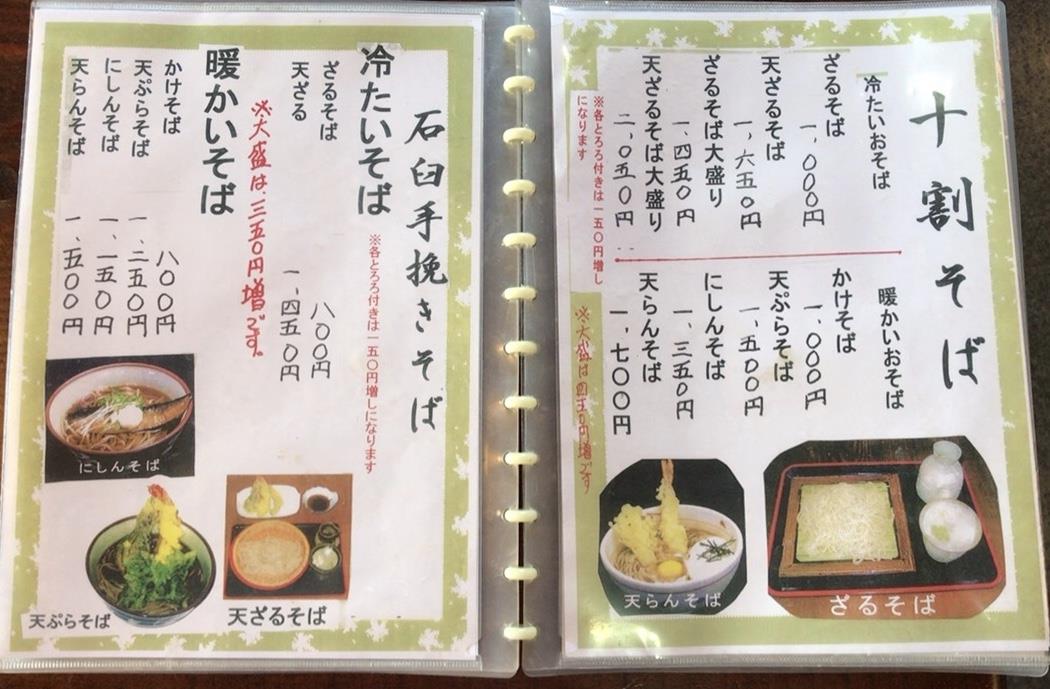 十割そば
冷たいおそば
ざるそば
一、〇〇〇円
天ざるそば
一、六五〇円
ざるそば大盛り
一、四五〇円
天ざるそば大盛り
二、〇五〇円
※各とろろ付きは一五〇円増し
になります
暖かいおそば
かけそば
一、〇〇〇円
天ぷらそば
一、五〇〇円
にしんそば
一、三五〇円
天らんそば
一、七〇〇円
※大盛は四五〇円増です
天らんそば
ざるそば
石臼手挽きそば
※各とろろ付きは一五〇円増しになります
冷たいそば
ざるそば
八〇〇円
天ざる
一、四五〇円
※大盛は、三五〇円増です。
暖かいそば
かけそば
八〇〇円
天ぷらそば
一、三五〇円
にしんそば
一、一五〇円
天らんそば
一、五〇〇円
にしんそば
天ぷらそば
天ざるそば